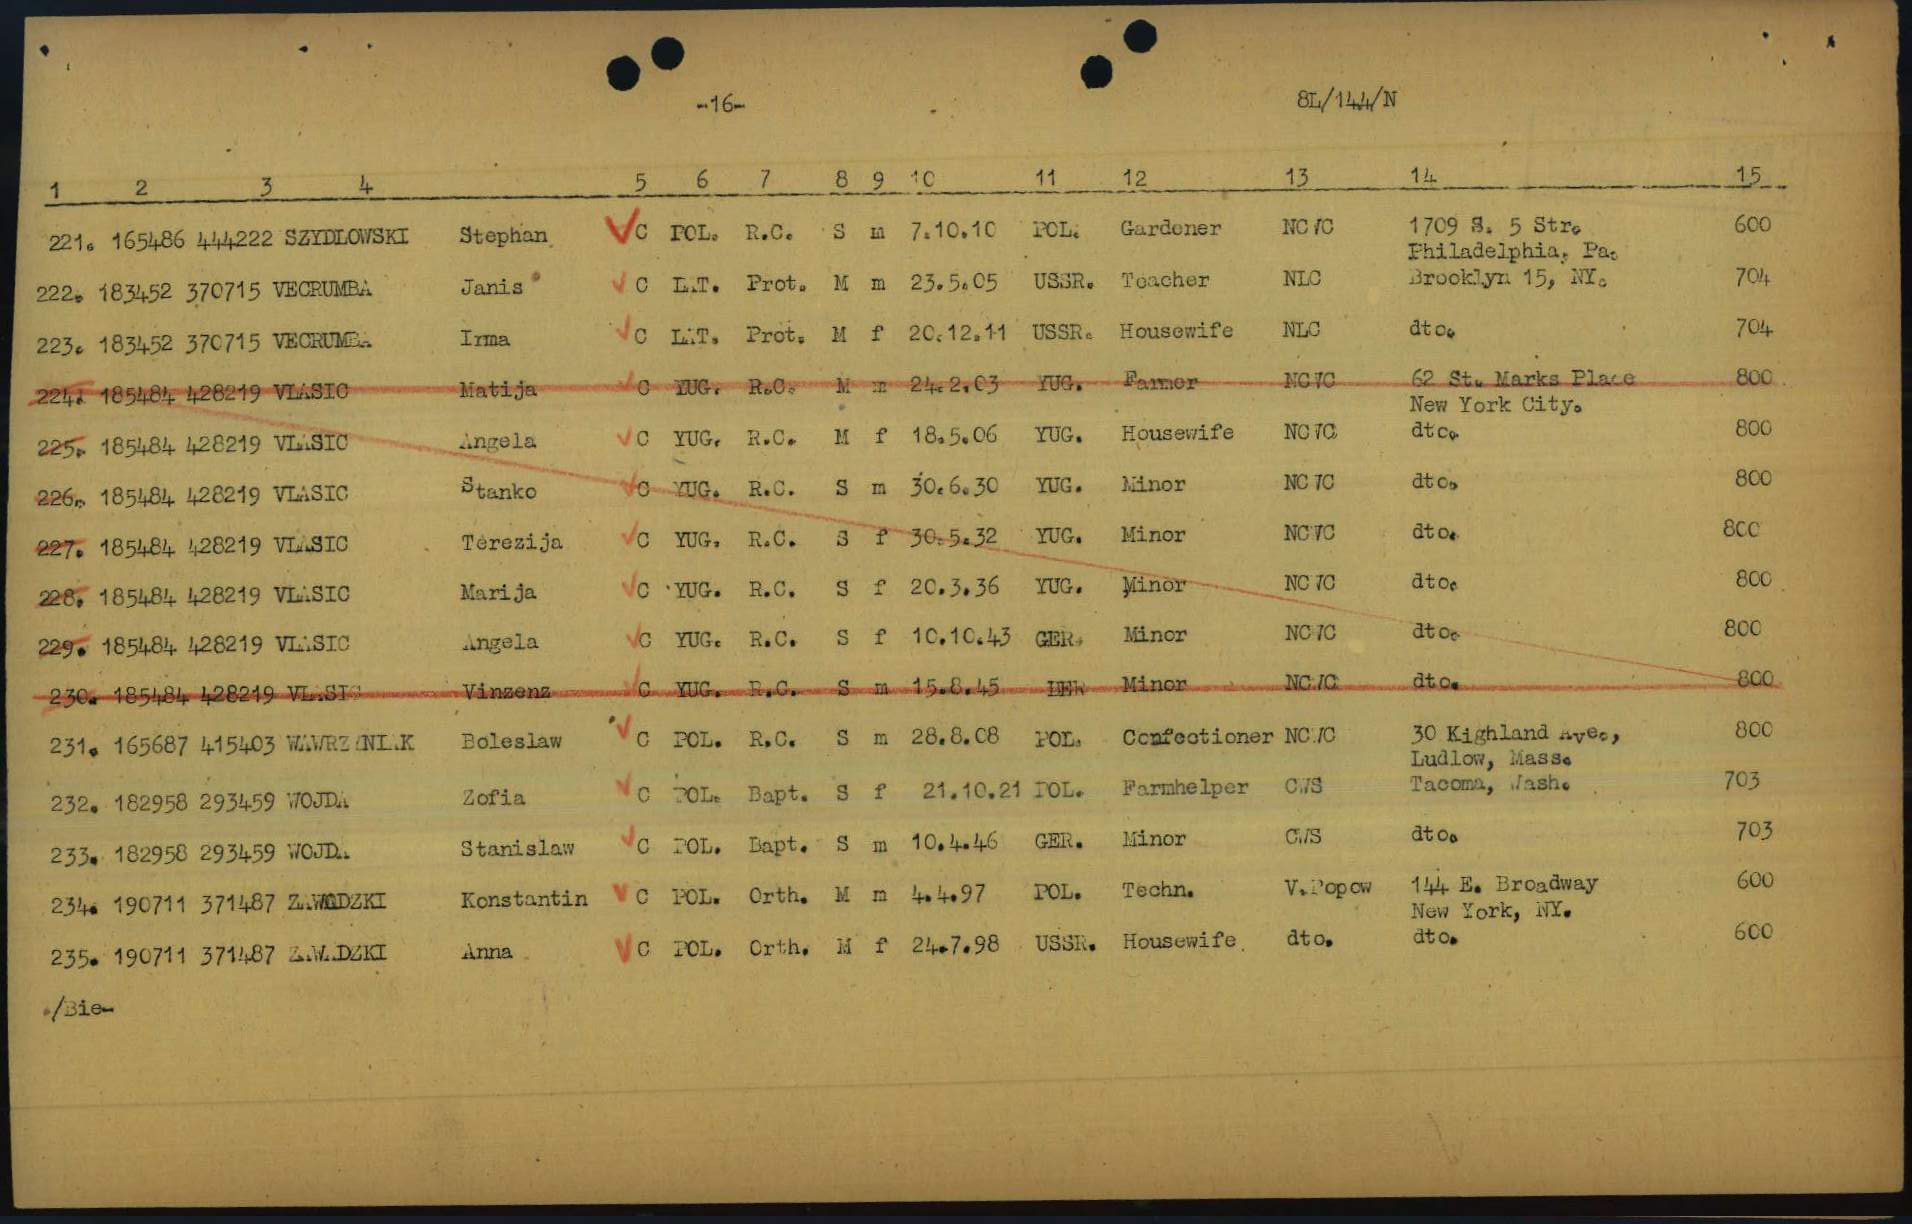 -16- 8L/144/N
1 2 3 4 5 6 7 8 9 10 11 12 13 14 15
221. 165486 444222 SZYDLOWSKI Stephan C POL. R.C. S m 7.10.10 POL. Gardener NCWC 1709 S. 5 Str. 600
Philadelphia, Pa.
222. 183452 370715 VECRUMBA Janis C LAT. Prot. M m 23.5.05 USSR. Teacher NLC Brooklyn 15, NY. 704
223. 183452 370715 VECRUMBA Irma C LAT. Prot. M f 20.12.11 USSR. Housewife NLC dto. 704
224. 185484 428219 VLASIC Matija C YUG. R.C. M m 24.2.03 YUG. Farmer NCWC 62 St. Marks Place 800
New York City.
225. 185484 428219 VLASIC Angela C YUG. R.C. M f 18.5.06 YUG. Housewife NCWC dto. 800
226. 185484 428219 VLASIC Stanko C YUG. R.C. S m 30.6.30 YUG. Minor NCWC dto. 800
227. 185484 428219 VLASIC Terezija C YUG. R.C. S f 30.5.32 YUG. Minor NCWC dto. 800
228. 185484 428219 VLASIC Marija C YUG. R.C. S f 20.3.36 YUG. Minor NCWC dto. 800
229. 185484 428219 VLASIC Angela C YUG. R.C. S f 10.10.43 GER. Minor NCWC dto. 800
230. 185484 428219 VLASIC Vinzenz C YUG. R.C. S m 15.8.45 Minor NCWC dto. 800
231. 165687 415403 WAWRZYNIAK Boleslaw C POL. R.C. S m 28.8.08 POL. Confectioner NCWC 30 Kighland Ave., 800
Ludlow, Mass.
232. 182958 293459 WOJDA Zofia C POL. Bapt. S f 21.10.21 POL. Farmhelper CWS Tacoma, Wash. 703
233. 182958 293459 WOJDA Stanislaw C POL. Bapt. S m 10.4.46 GER. Minor CWS dto. 703
234. 190711 371487 ZAWADZKI Konstantin C POL. Orth. M m 4.4.97 POL. Techn. V.Popow 144 E. Broadway 600
New York, NY.
235. 190711 371487 ZAWADZKI Anna C POL. Orth. M f 24.7.98 USSR. Housewife dto. dto. 600
./Bie-